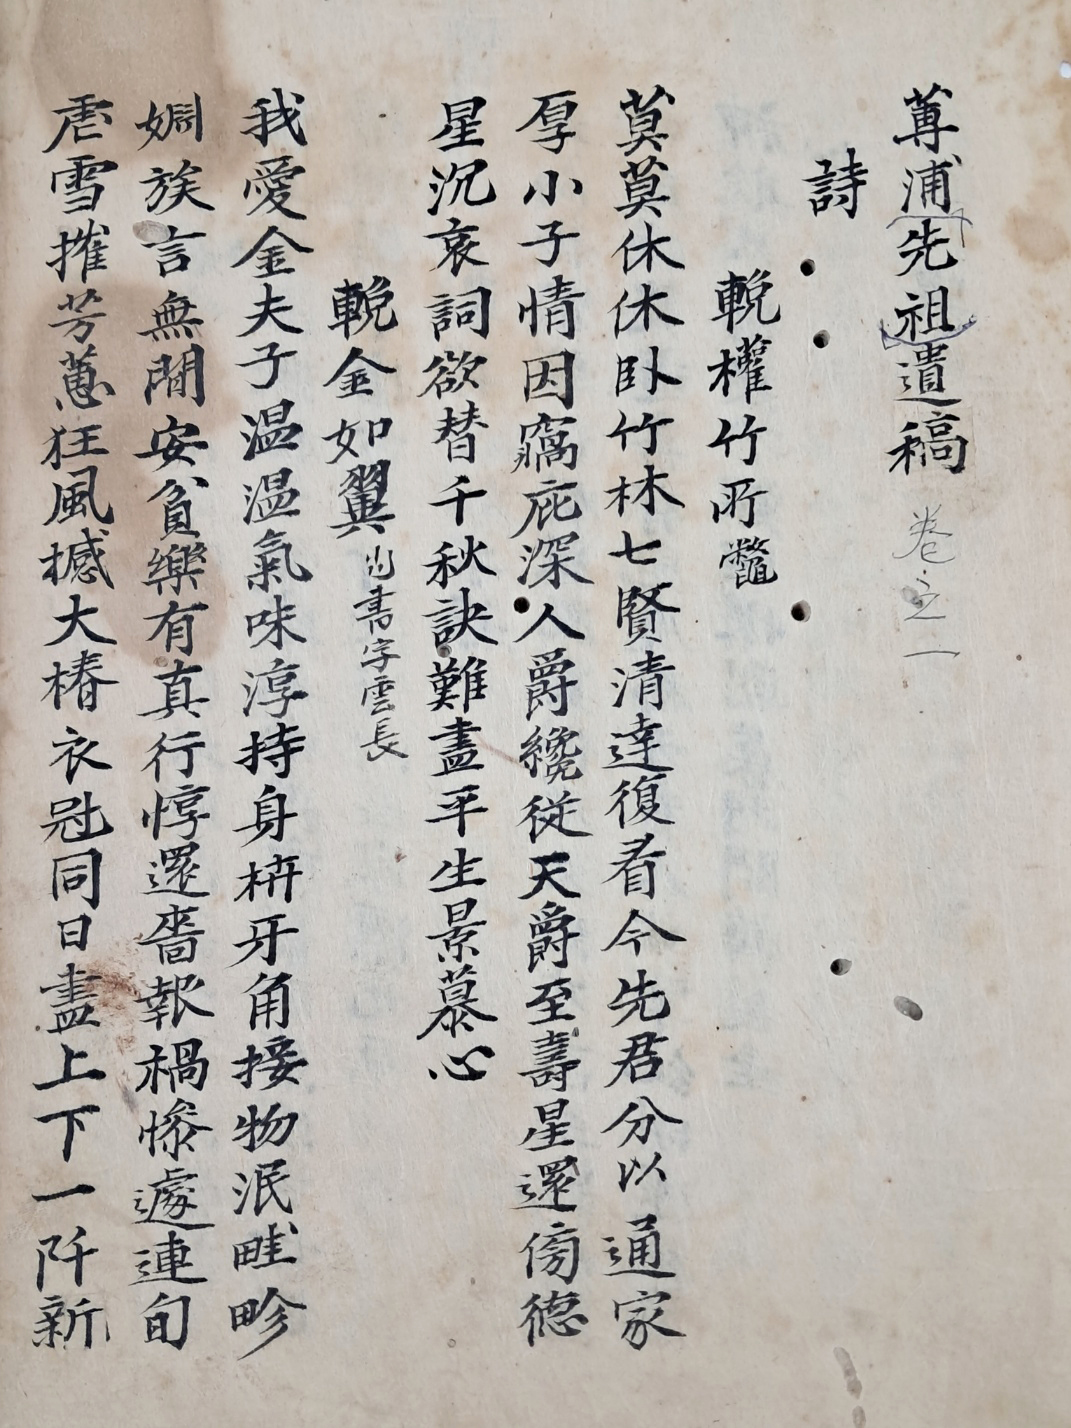 蓴浦先祖遺稿 卷之一
詩
輓權竹所鼈
莫莫休休卧竹林七賢清達復看今先君分以通家
厚小子情因竊庇深人爵纔從天爵至壽星還傍德
星沉哀詞欲替千秋訣難盡平生景慕心
輓金如翼 尚書字雲長
我愛金夫子温温氣味淳持身枿牙角接物泯畦畛
婣族言無閒安貧樂有真行惇還嗇報禍慘遽連旬
虐雪摧芳蕙狂風撼大椿衣冠同日盡上下一阡新